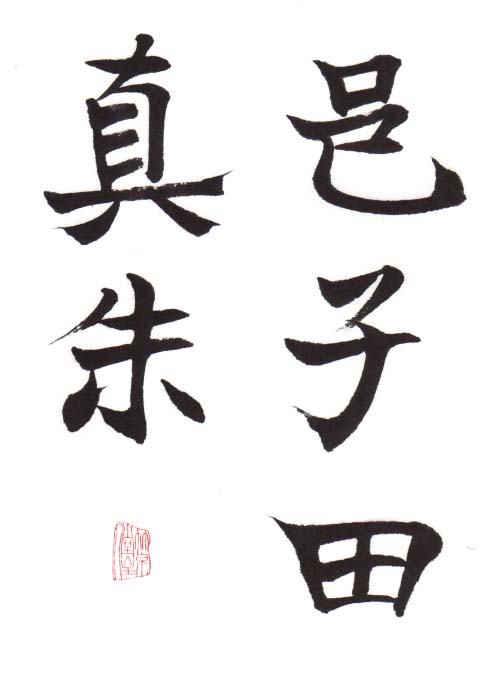 邑子田
真朱